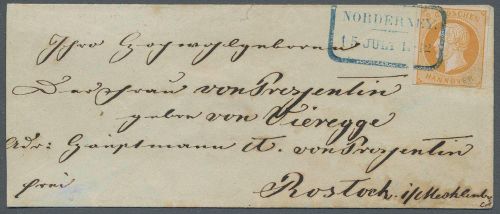 NORDERNEY
15 JULI
GROSCHEN
HANNOVER
Ihro Hochwohlgeboren
Der Frau von Prozentin
geborn von Vieregge
Adr: Hauptmann v. von Prozentin
frei
Rostock i/Mecklenbg